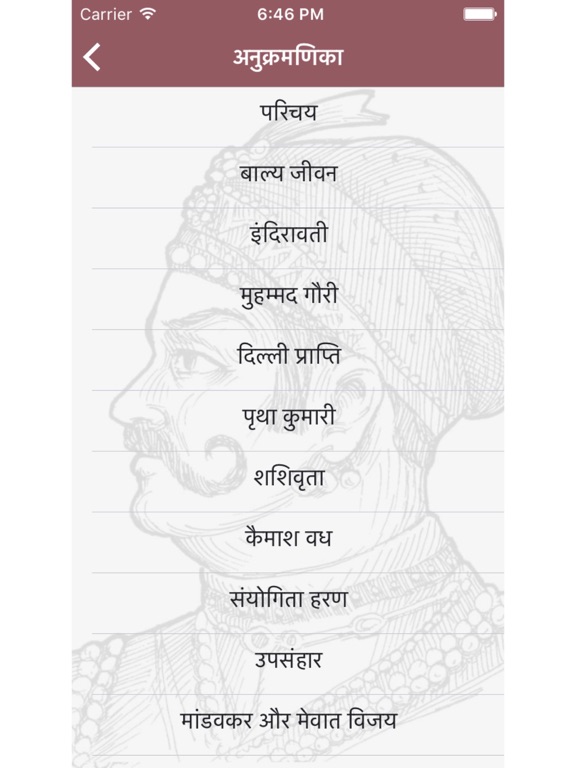 Carrier 6:46 PM
अनुक्रमणिका
परिचय
बाल्य जीवन
इंदिरावती
मुहम्मद गौरी
दिल्ली प्राप्ति
पृथा कुमारी
शशिवृता
कैमाश वध
संयोगिता हरण
उपसंहार
मांडवकर और मेवात विजय